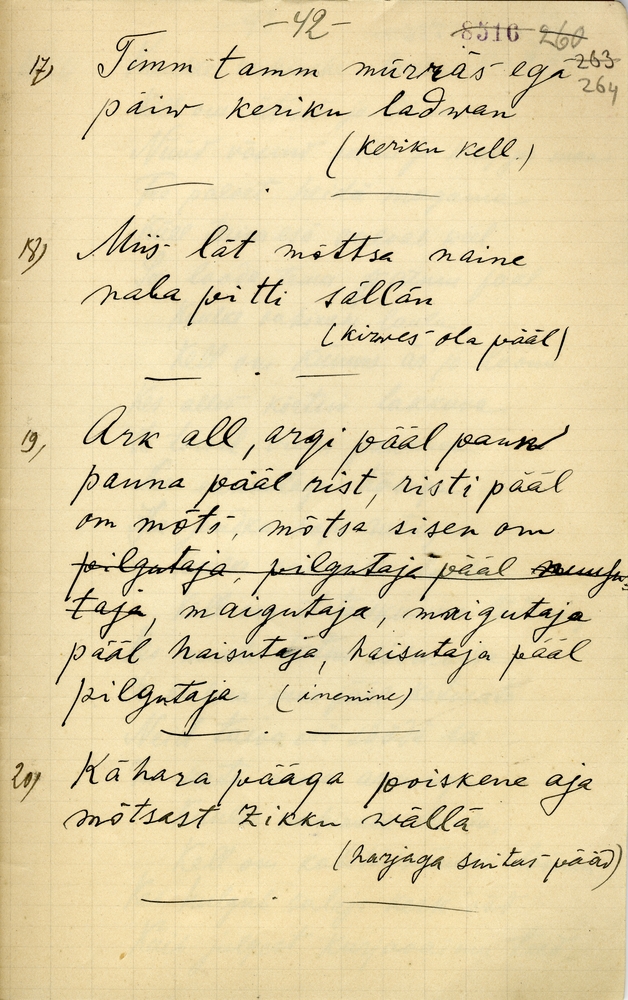 -42-
8516 260
263
264
17) Timm tamm mürräs ega
päiw keriku ladwan
(keriku kell.)
18) Miis lät mõttsa naine
naba pitti sällän
(kirwes ola pääl)
19, Ark all, argi pääl paun
pauna pääl rist, risti pääl
om mõts, mõtsa sisen om
pilgutaja, pilgutaja pääl
taja, maigutaja, maigutaja
pääl haisutaja, haisutaja pääl
pilgutaja (inemine)
20) Kähara pääga poiskene aja
mõtsast zikku wällä
(harjaga suitas pääd)